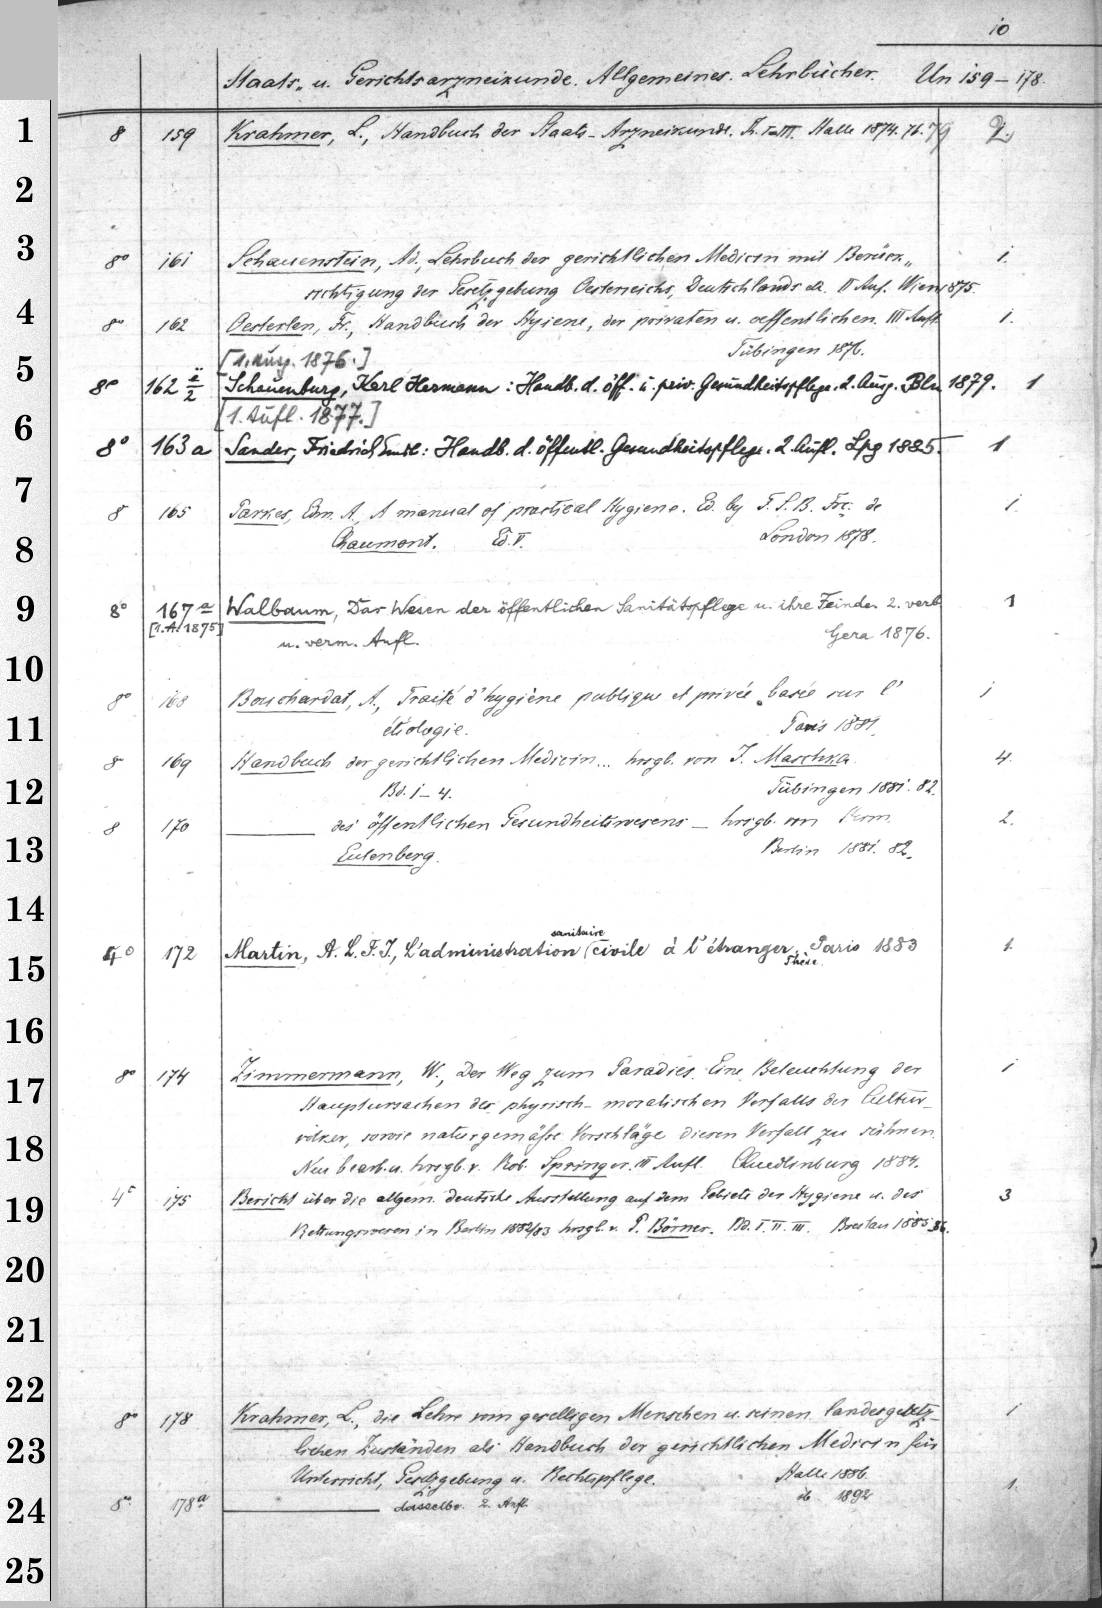 10
Staats- u. Gerichtsarzneikunde. Allgemeines. Lehrbücher. Un 159-178.
1 8 159 Krahmer, L., Handbuch der Staats-Arzneikunde. Th. I-III. Halle 1874. 76. 79 2.
2
3 8° 161 Schauenstein, Ad., Lehrbuch der gerichtlichen Medicin mit Berück- 1.
sichtigung der Gesetzgebung Oesterreichs, Deutschlands II Auf. Wien 1875.
4 8° 162 Oesterlen, Fr., Handbuch der Hygiene, der privaten u. oeffentlichen. III Aufl. 1.
Tübingen 1876.
5 [1. Ausg. 1876.]
8° 162 Schauenburg, Karl Hermann: Handb. d. öff. u. priv. Gesundheitspflege. 2. Ausg. Bln 1879. 1
6 [1. Aufl. 1877.]
8° 163a Sander, Friedrich Emil: Handb. d. öffentl. Gesundheitspflege. 2. Aufl. Lpg 1885. 1
7 8 165 Parkes, Edm. A., A manual of practical Hygiene. Ed. by F. S. B. Frç. de 1.
8 Chaumont. Ed. V. London 1878.
9 8° 167a Walbaum, Das Wesen der öffentlichen Sanitätspflege u. ihre Feinde. 2. verb. 1
[1.A. 1875] u. verm. Aufl. Gera 1876.
10
8° 168 Bouchardat, A., Traité d'hygiène publique et privée basée sur l' 1
11 étiologie. Paris 1881.
8° 169 Handbuch der gerichtlichen Medicin... hrsgb. von J. Maschka. 4.
12 Bd. 1-4. Tübingen 1881. 82.
8 170 ——— des öffentlichen Gesundheitswesens — hrsgb. von Herm. 2.
13 Eulenberg. Berlin 1881. 82.
14
sanitaire
15 4° 172 Martin, A. L. F. J., L'administration civile à l'étranger. Thèse. Paris 1883 1.
16
8° 174 Zimmermann, W., Der Weg zum Paradies. Eine Beleuchtung der 1
17 Hauptursachen des physisch-moralischen Verfalls der Cultur-
18 völker, sowie naturgemäße Vorschläge diesen Verfall zu sühnen.
Neu bearb. u. hrsgb. v. Rob. Springer. III Aufl. Quedlinburg 1884.
19 4° 175 Bericht über die allgem. deutsche Ausstellung auf dem Gebiete der Hygiene u. des 3
Rettungswesen in Berlin 1882/83 hrsgb. v. P. Börner. Bd. I. II. III. Breslau 1885. 86.
20
21
22
8° 178 Krahmer, L., die Lehre vom geselligen Menschen u. seinen landesgesetz- 1
23 lichen Zuständen als Handbuch der gerichtlichen Medicin für
Unterricht, Gesetzgebung u. Rechtspflege. Halle 1886.
24 8° 178a ——— dasselbe. 2. Aufl. ib 1892 1.
25